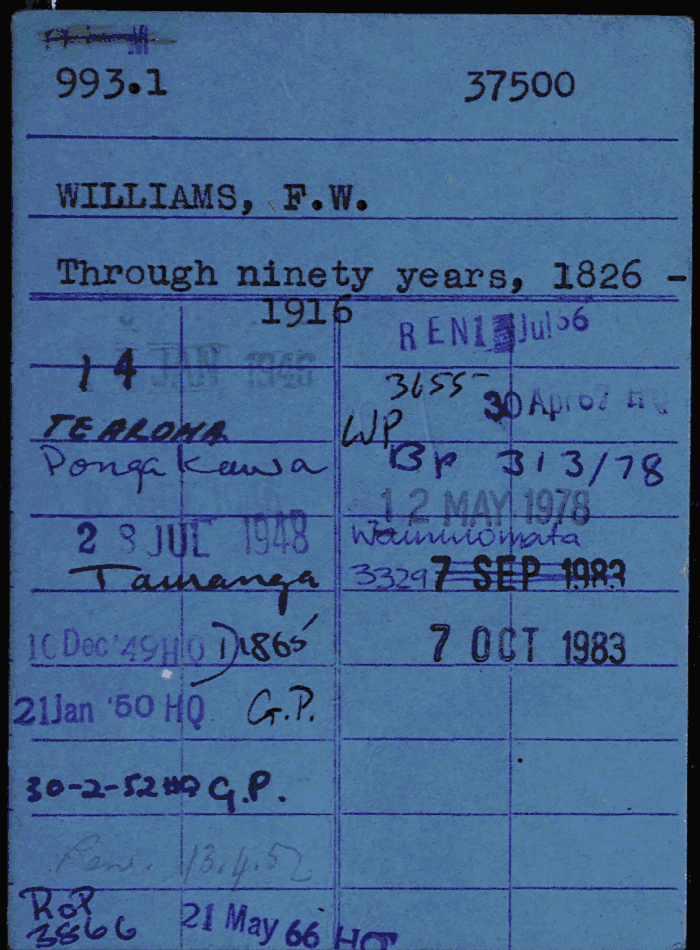 993.1 37500
WILLIAMS, F.W.
Through ninety years, 1826 -
1916
14 JAN 1948
TE AROHA
Pongakawa
28 JUL 1948
Tauranga
10 Dec '49 HQ D1865
21 Jan '50 HQ G.P.
30-2-52 HQ G.P.
Renr. 13.4.52
RoP
3866 21 May 66 HQ
REN1 Jul 66
3655 30 Apr 67 HQ
WP
BP 313/78
12 MAY 1978
Wainuiomata
3329 7 SEP 1983
7 OCT 1983